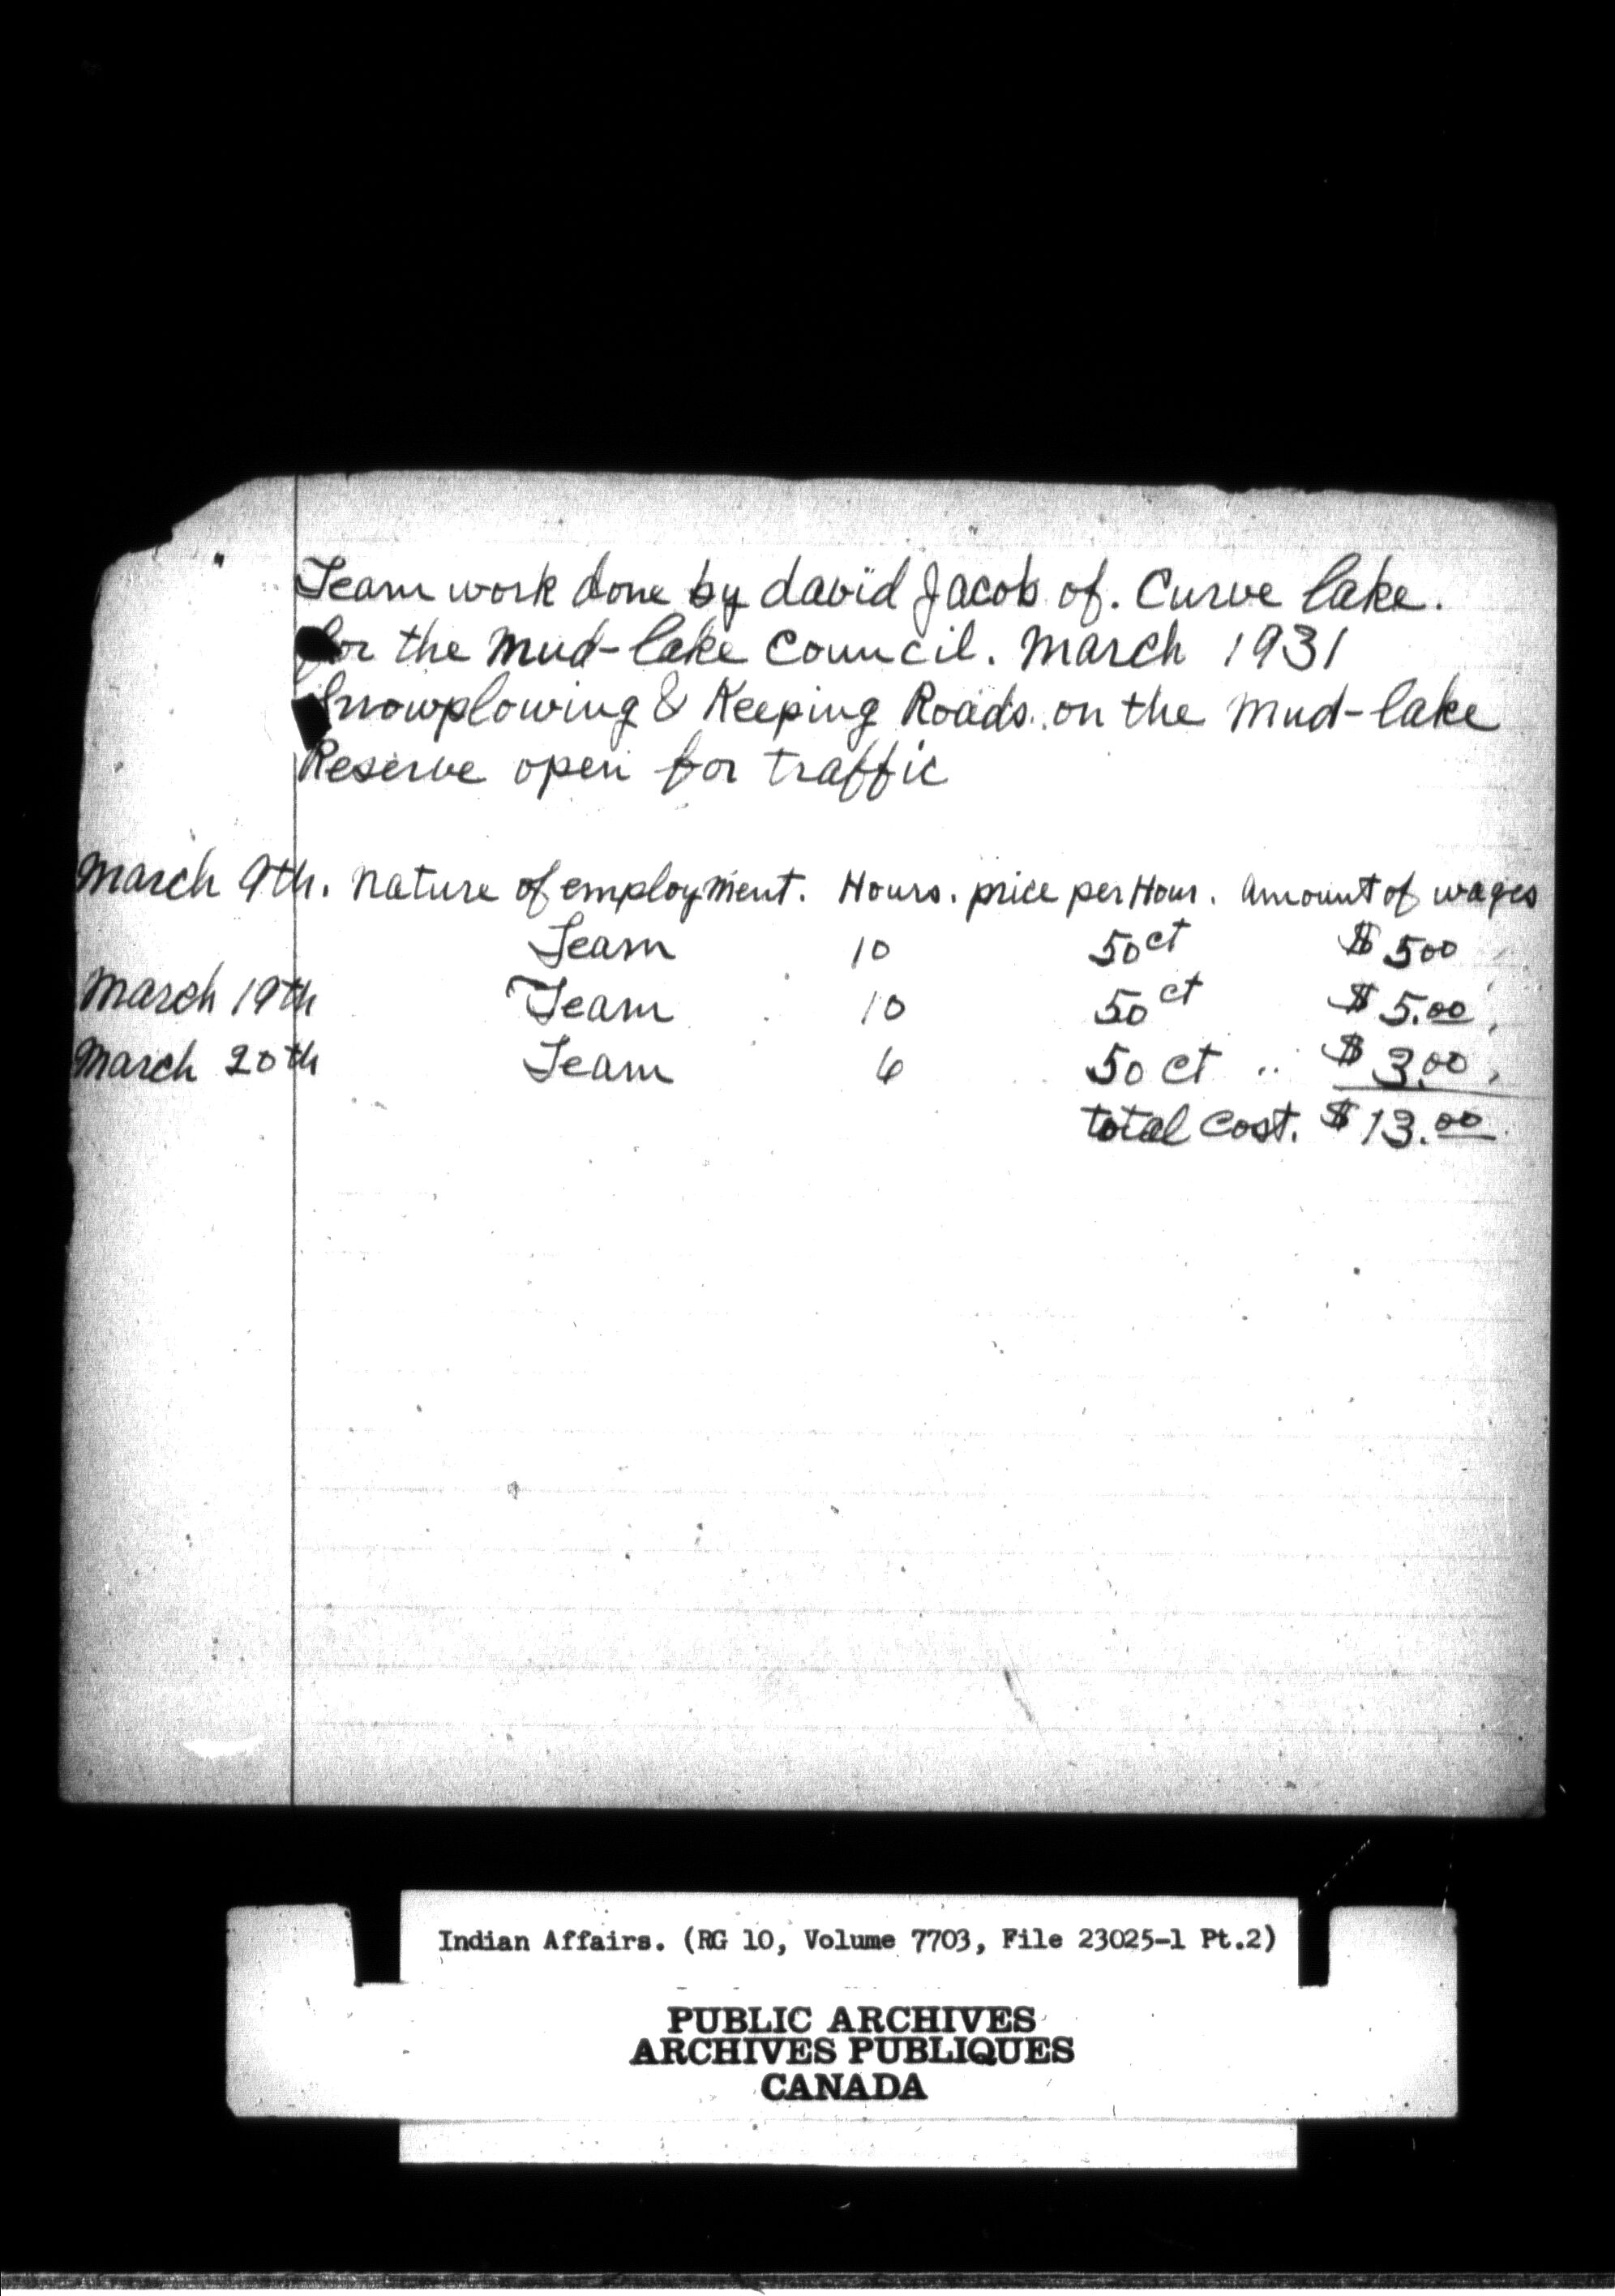 Team work done by david Jacob of. Curve lake.
for the mud-lake Council. March 1931
Snowplowing & Keeping Roads. on the mud-lake
Reserve open for traffic
March 9th. nature of employment. Hours. price per Hour. amount of wages
Team 10 50ct $ 500
March 19th Team 10 50ct $ 5.00
March 20th Team 6 50 ct .. $ 3.00
total Cost. $ 13.00
Indian Affairs. (RG 10, Volume 7703, File 23025-1 Pt.2)
PUBLIC ARCHIVES
ARCHIVES PUBLIQUES
CANADA